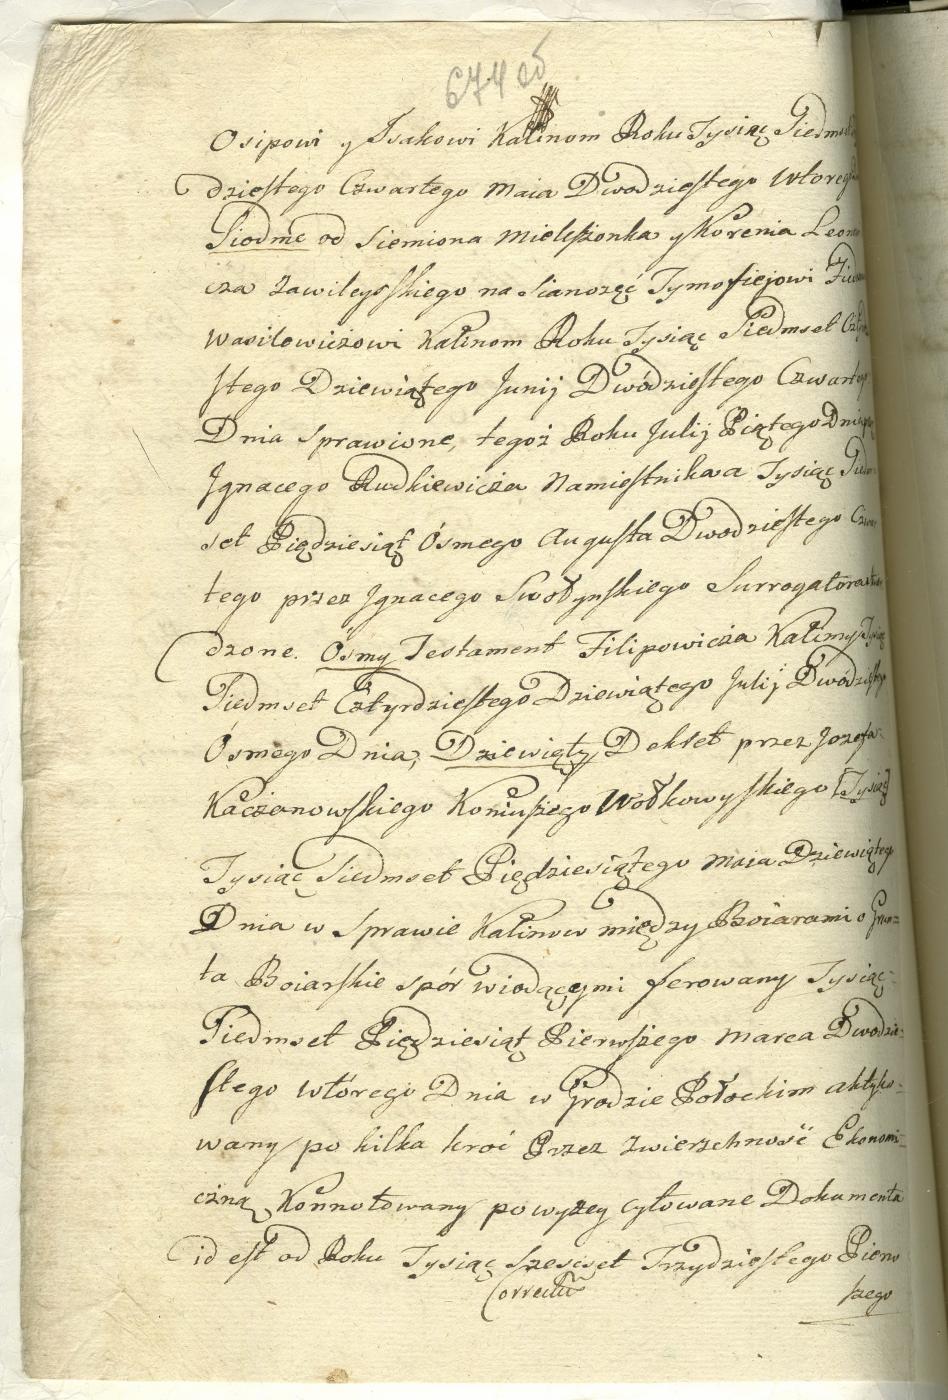 674 об
Osipowi y Jsakowi Kalinom Roku Tysiąc Siedmset
dziestego Czwartego Maia Dwodziestego Wtorego
Siodme od Siemiona Mielszonka y Korenia Leono
cza Zawileyskiego na Sianożęć Tymofiejowi
Wasilowiczowi Kalinom Roku Tysiąc Siedmset Cztyr
stego Dziewiątego Junij Dwódziestego Czwartego
Dnia Sprawione, tegoż Roku Julij Piątego Dnia
Jgnacego Rudkiewicza Namiestnika a Tysiąc Siedm
set Pięcdziesiąt Ósmego Augusta Dwodziestego Czwar
tego przez Jgnacego Swołynskiego Surrogatora
dzone. Ósmy Testament Filipowicza Kalimy Tysiąc
Siedmset Cztyrdziestego Dziewiątego Julij Dwodziestego
Ósmego Dnia, Dziewiąty Dekret przez Jozefa
Kaczanowskiego Koniuszego Wołkowyskiego Tysiąc
Tysiąc Siedmset Pięcdziesiątego Maia Dziewiątego
Dnia w Sprawie Kalinow między Boiarami o Grun-
ta Boiarskie spór wiodącymi ferowany Tysiąc
Siedmset Pięcdziesiąt Pierwszego Marca Dwodzie-
stego wtórego Dnia w Grodzie Połockim aktyko-
wany po kilka kroć Przez Zwierzchność Ekonomi-
czną Konnotowany powyzey cytowane Dokumenta
id est od Roku Tysiąc Szescset Trzydziestego Pierw
szego
Correctum